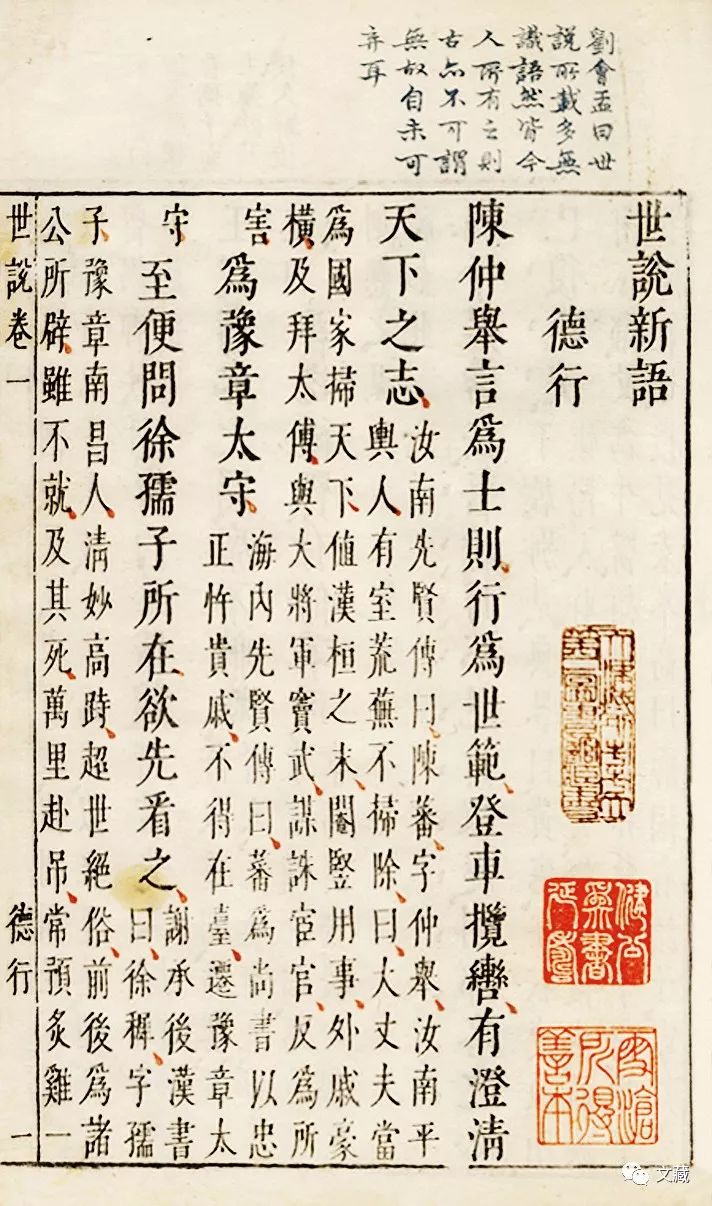 劉會孟曰世
說所載多無
識語然皆今
人所有之則
古亦不可謂
無故自未可
弃耳
世說新語
德行
陳仲舉言爲士則行爲世範登車攬轡有澄清
天下之志
汝南先賢傳曰陳蕃字仲舉汝南平
輿人有室荒蕪不掃除曰大丈夫當
爲國家掃天下值漢桓之末閹豎用事外戚豪
橫及拜太傅與大將軍竇武謀誅宦官反爲所
害
爲豫章太守
海内先賢傳曰蕃爲尚書以忠
正忤貴戚不得在臺遷豫章太
守
至便問徐孺子所在欲先看之
謝承後漢書
曰徐穉字孺
子豫章南昌人清妙高跱超世絕俗前後爲諸
公所辟雖不就及其死萬里赴吊常預炙雞一
世說卷一
德行
一
雪滄所得善本
文藏